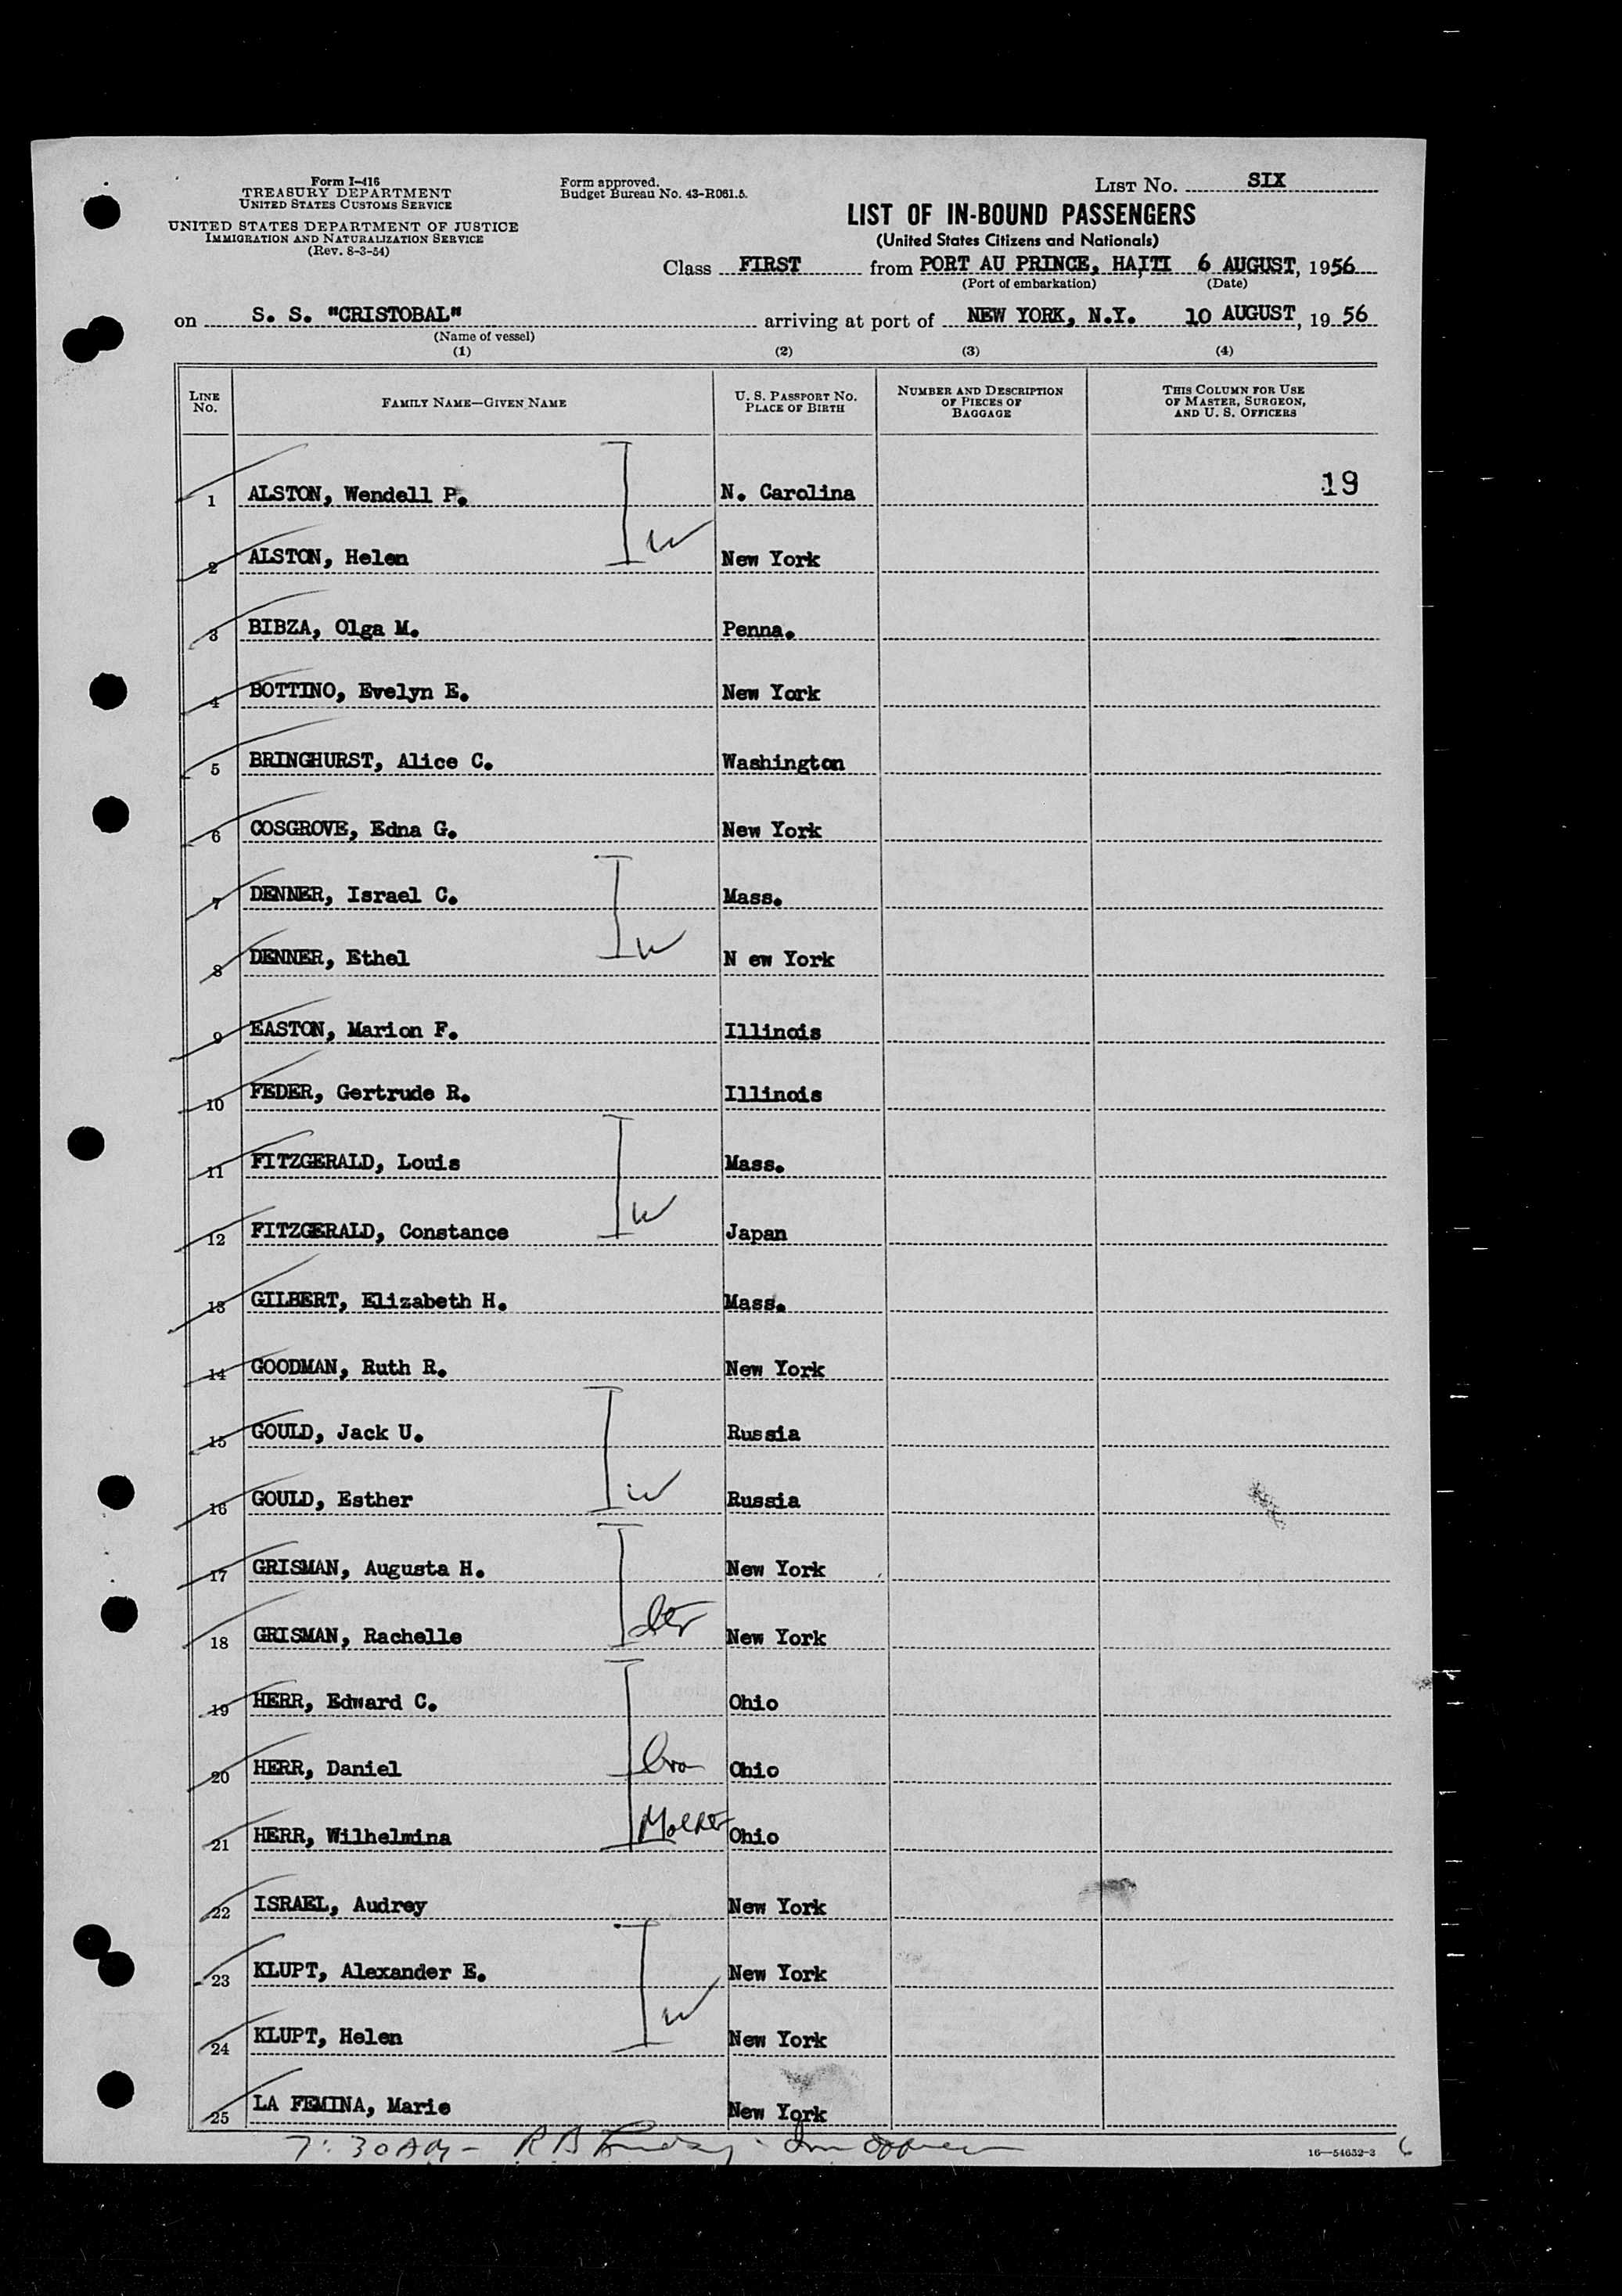 Form I-416
TREASURY DEPARTMENT
UNITED STATES CUSTOMS SERVICE
UNITED STATES DEPARTMENT OF JUSTICE
IMMIGRATION AND NATURALIZATION SERVICE
(Rev. 8-3-54)
Form approved.
Budget Bureau No. 43-R061.5.
LIST NO. SIX
LIST OF IN-BOUND PASSENGERS
(United States Citizens and Nationals)
Class FIRST from PORT AU PRINCE, HAITI 6 AUGUST, 1956
(Port of embarkation) (Date)
on S. S. "CRISTOBAL" arriving at port of NEW YORK, N.Y. 10 AUGUST, 19 56
(Name of vessel)
(1) (2) (3) (4)
LINE NO.
FAMILY NAME—GIVEN NAME
U. S. PASSPORT NO.
PLACE OF BIRTH
NUMBER AND DESCRIPTION
OF PIECES OF
BAGGAGE
THIS COLUMN FOR USE
OF MASTER, SURGEON,
AND U. S. OFFICERS
1 ALSTON, Wendell P. N. Carolina 19
2 ALSTON, Helen W New York
3 BIBZA, Olga M. Penna.
4 BOTTINO, Evelyn E. New York
5 BRINGHURST, Alice C. Washington
6 COSGROVE, Edna G. New York
7 DENNER, Israel C. Mass.
8 DENNER, Ethel W N ew York
9 EASTON, Marion F. Illinois
10 FEDER, Gertrude R. Illinois
11 FITZGERALD, Louis Mass.
12 FITZGERALD, Constance W Japan
13 GILBERT, Elizabeth H. Mass.
14 GOODMAN, Ruth R. New York
15 GOULD, Jack U. Russia
16 GOULD, Esther W Russia
17 GRISMAN, Augusta H. New York
18 GRISMAN, Rachelle New York
19 HERR, Edward C. Ohio
20 HERR, Daniel Bro Ohio
21 HERR, Wilhelmina Ohio
22 ISRAEL, Audrey New York
23 KLUPT, Alexander E. New York
24 KLUPT, Helen W New York
25 LA FEMINA, Marie New York
7:30AM -
16—54632-3 6